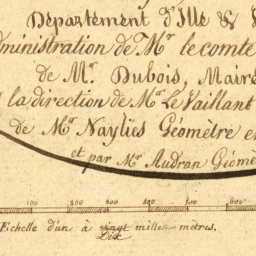 Département d'Ille &
dministration de Mr. le comte
de Mr. Dubois, Maire
la direction de Mr Le Vaillant
de Mr Naylies Géomètre en
et par Mr Audran Géomè
100 200 300 400 500 600
Echelle d'un à vingt milles mètres.
Dix